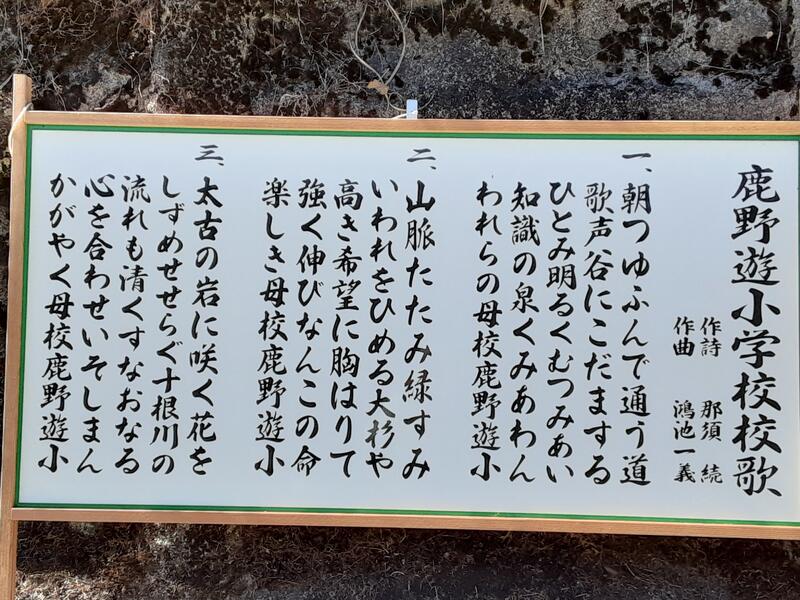 鹿野遊小学校校歌
作詩 那須 続
作曲 鴻池一義
一、朝つゆふんで通う道
歌声谷にこだまする
ひとみ明るくむつみあい
知識の泉くみあわん
われらの母校鹿野遊小
二、山脈たたみ緑すみ
いわれをひめる大杉や
高き希望に胸はりて
強く伸びなんこの命
楽しき母校鹿野遊小
三、太古の岩に咲く花を
しずめせせらぐ十根川の
流れも清くすなおなる
心を合わせいそしまん
かがやく母校鹿野遊小